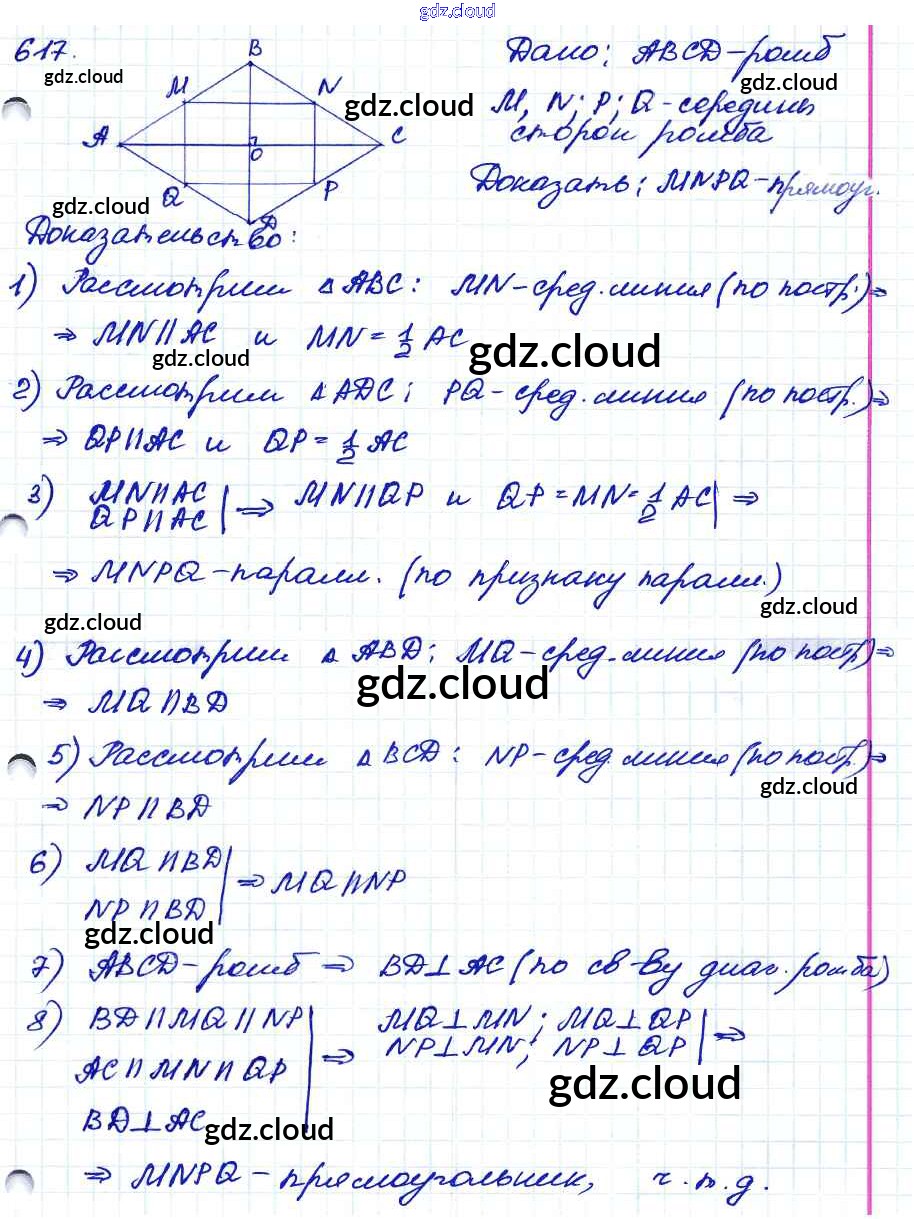 gdz.cloud
617.
B
Дано: ABCD-ромб
gdz.cloud
M
N
gdz.cloud
M, N; P; Q-середины
A
C
сторон ромба
O
Q
P
Доказать: MNPQ-прямоуг.
gdz.cloud
D
Доказательство:
1) Рассмотрим △ABC: MN-сред.линия (по постр.) ⇒
⇒ MN||AC и MN = 1/2 AC
gdz.cloud
gdz.cloud
2) Рассмотрим △ADC; PQ-сред.линия (по постр.) ⇒
⇒ QP||AC и QP = 1/2 AC
3) MN||AC
QP||AC | ⇒ MN||QP и QP = MN = 1/2 AC | ⇒
⇒ MNPQ-паралл. (по признаку паралл.)
gdz.cloud
gdz.cloud
4) Рассмотрим △ABD; MQ-сред.линия (по постр) ⇒
gdz.cloud
⇒ MQ||BD
5) Рассмотрим △BCD: NP-сред.линия (по постр.) ⇒
gdz.cloud
⇒ NP||BD
6) MQ||BD
NP||BD | ⇒ MQ||NP
gdz.cloud
7) ABCD-ромб ⇒ BD⊥AC (по св-ву диаг. ромба)
8) BD||MQ||NP
AC||MN||QP | ⇒ MQ⊥MN; MQ⊥QP
NP⊥MN; NP⊥QP | ⇒
gdz.cloud
BD⊥AC
gdz.cloud
⇒ MNPQ-прямоугольник, ч.т.д.